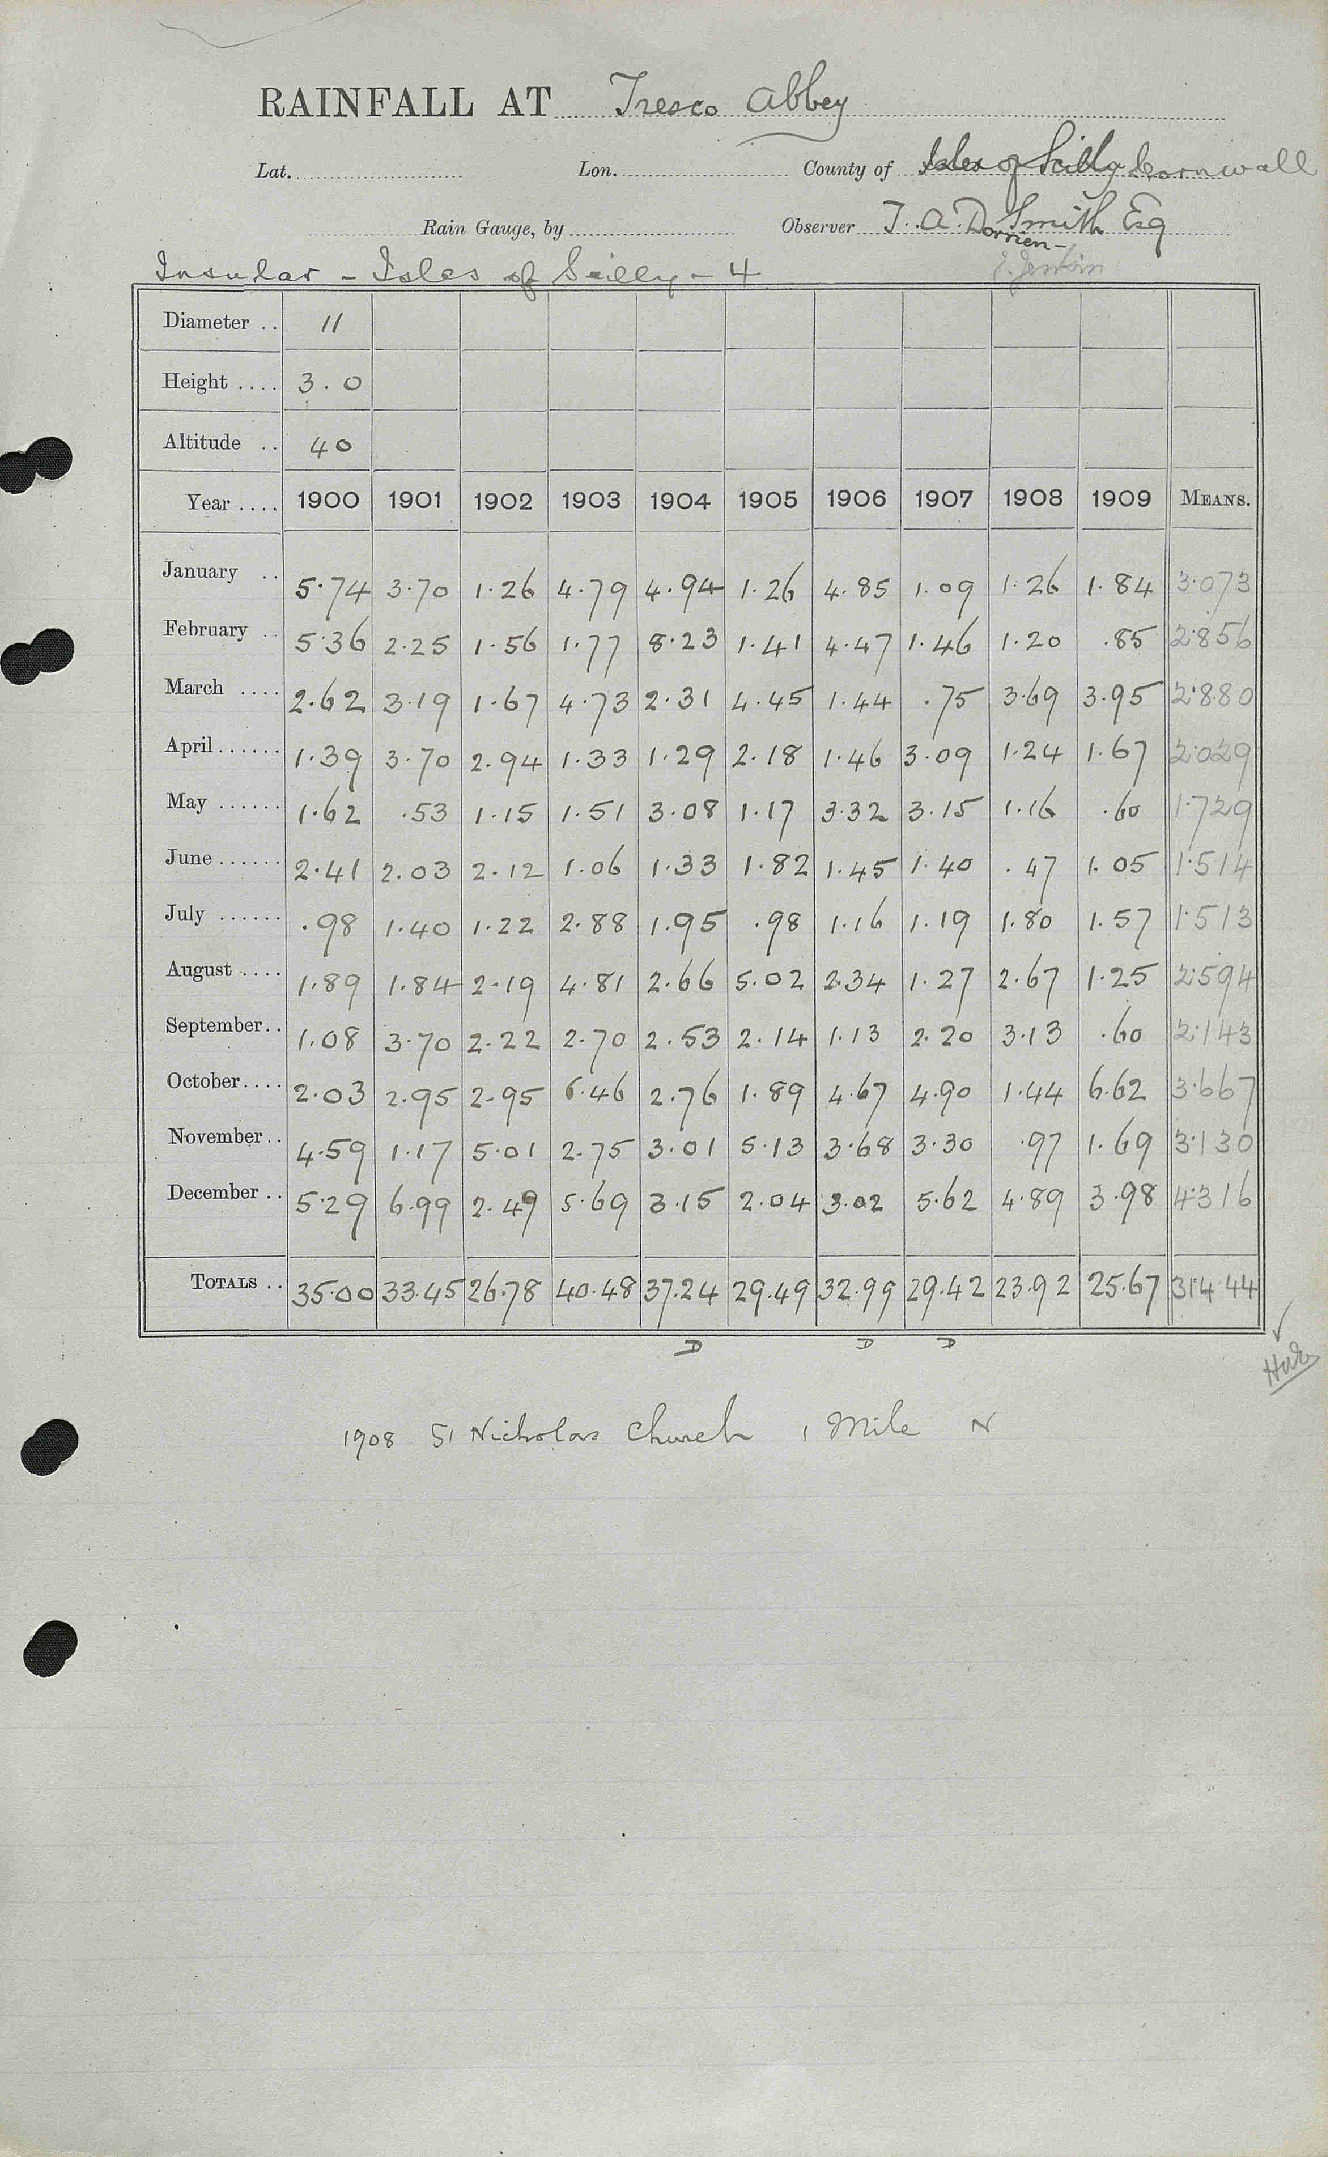 RAINFALL AT Tresco Abbey
Lat. Lon. County of Isles of Scilly Cornwall
Rain Gauge, by Observer T. A. Dorrien-Smith Esq
Insular - Isles of Scilly - 4
Diameter .. 11
Height .... 3.0
Altitude .. 40
Year .... 1900 1901 1902 1903 1904 1905 1906 1907 1908 1909 MEANS.
January .. 5.74 3.70 1.26 4.79 4.94 1.26 4.85 1.09 1.26 1.84 3.073
February .. 5.36 2.25 1.56 1.77 8.23 1.41 4.47 1.46 1.20 .85 2.856
March .... 2.62 3.19 1.67 4.73 2.31 4.45 1.44 .75 3.69 3.95 2.880
April ...... 1.39 3.70 2.94 1.33 1.29 2.18 1.46 3.09 1.24 1.67 2.029
May ...... 1.62 .53 1.15 1.51 3.08 1.17 3.32 3.15 1.16 .60 1.729
June ...... 2.41 2.03 2.12 1.06 1.33 1.82 1.45 1.40 .47 1.05 1.514
July ...... .98 1.40 1.22 2.88 1.95 .98 1.16 1.19 1.80 1.57 1.513
August .... 1.89 1.84 2.19 4.81 2.66 5.02 2.34 1.27 2.67 1.25 2.594
September .. 1.08 3.70 2.22 2.70 2.53 2.14 1.13 2.20 3.13 .60 2.143
October .... 2.03 2.95 2.95 6.46 2.76 1.89 4.67 4.90 1.44 6.62 3.667
November .. 4.59 1.17 5.01 2.75 3.01 5.13 3.68 3.30 .97 1.69 3.130
December .. 5.29 6.99 2.49 5.69 3.15 2.04 3.02 5.62 4.89 3.98 4.316
TOTALS .. 35.00 33.45 26.78 40.48 37.24 29.49 32.99 29.42 23.92 25.67 31.444
D D D
1908 St Nicholas Church 1 Mile N